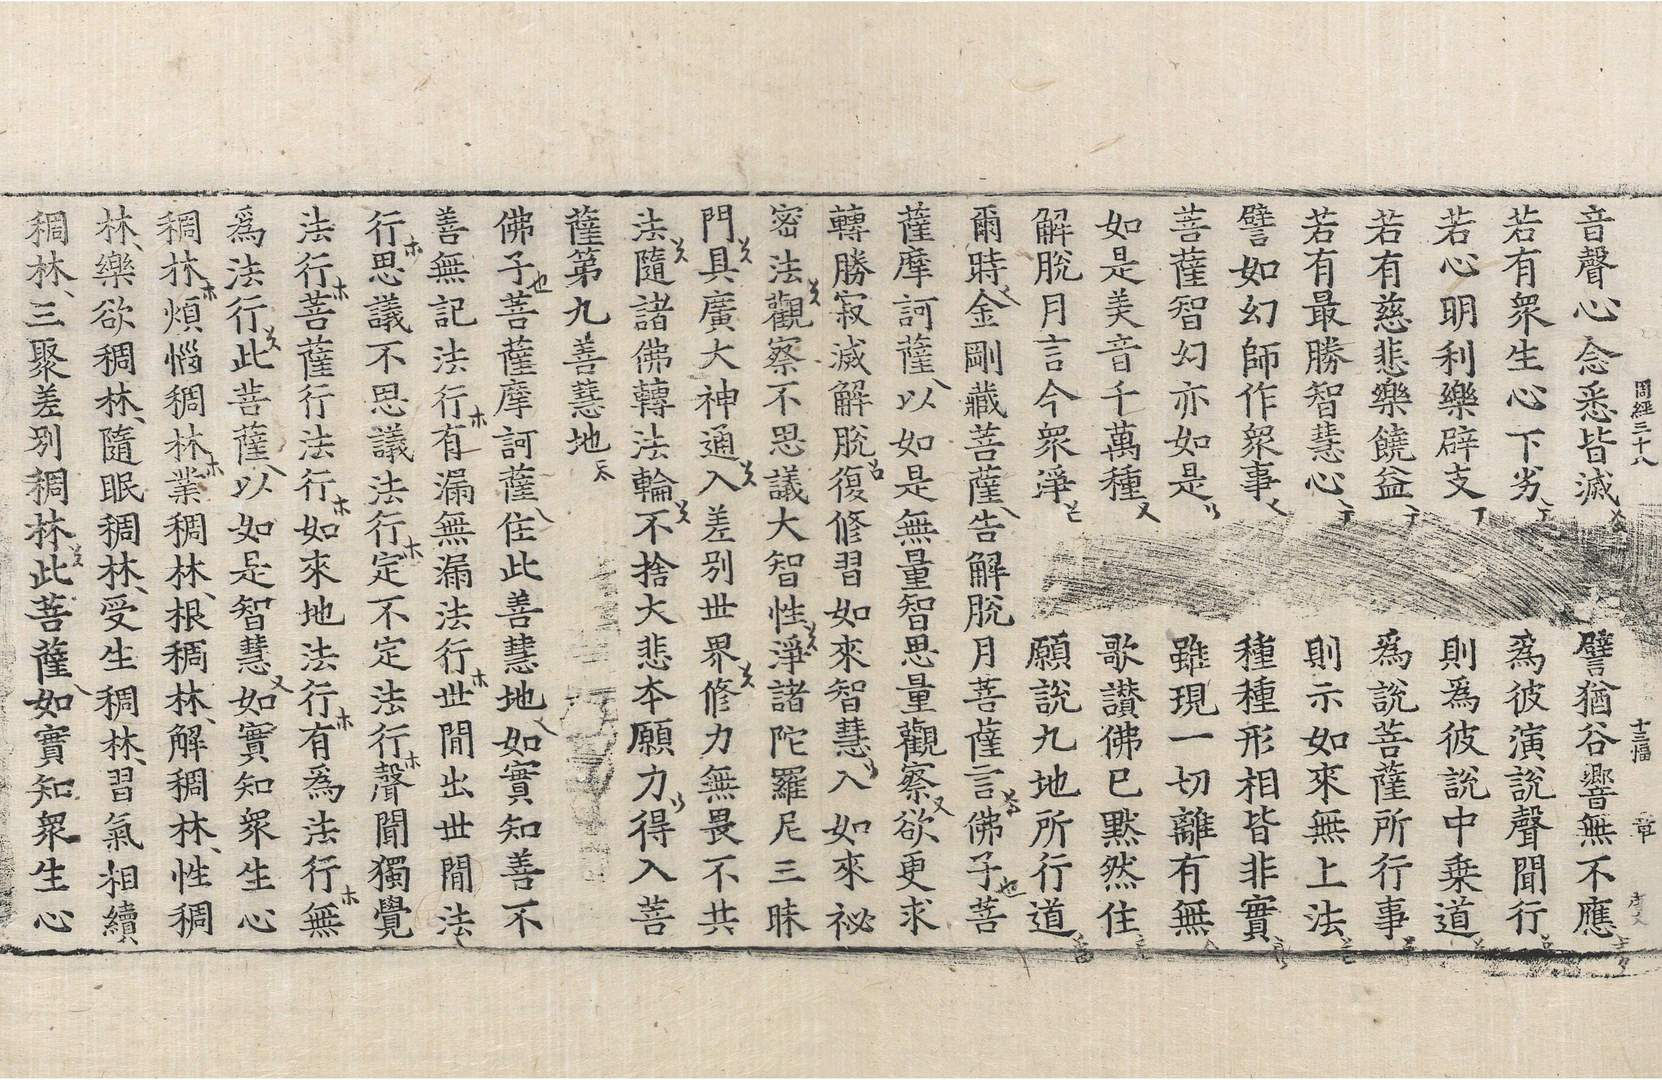 周經三十八 十三幅 章
音聲心念悉皆滅 譬猶谷響無不應
若有衆生心下劣 爲彼演說聲聞行
若心明利樂辟支 則爲彼說中乗道
若有慈悲樂饒益 爲說菩薩所行事
若有最勝智慧心 則示如來無上法
譬如幻師作衆事 種種形相皆非實
菩薩智幻亦如是 雖現一切離有無
如是美音千萬種 歌讃佛已黙然住
解脫月言今衆淨 願說九地所行道
爾時金剛藏菩薩告解脫月菩薩言佛子菩
薩摩訶薩以如是無量智思量觀察欲更求
轉勝寂滅解脫復修習如來智慧入如來祕
密法觀察不思議大智性淨諸陀羅尼三昧
門具廣大神通入差別世界修力無畏不共
法隨諸佛轉法輪不捨大悲本願力得入菩
薩第九善慧地
佛子菩薩摩訶薩住此善慧地如實知善不
善無記法行有漏無漏法行世間出世間法
行思議不思議法行定不定法行聲聞獨覺
法行菩薩行法行如來地法行有爲法行無
爲法行此菩薩以如是智慧如實知衆生心
稠林煩惱稠林業稠林根稠林解稠林性稠
林樂欲稠林隨眠稠林受生稠林習氣相續
稠林三聚差別稠林此菩薩如實知衆生心